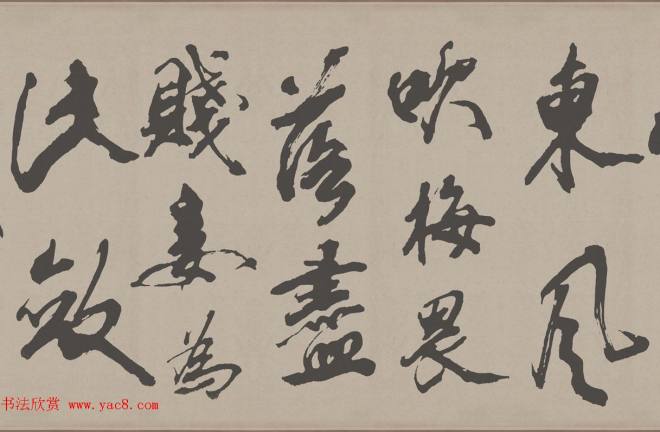 東風
吹梅畏
落盡
賤妾為
斂
书法欣赏 www.yac8.com